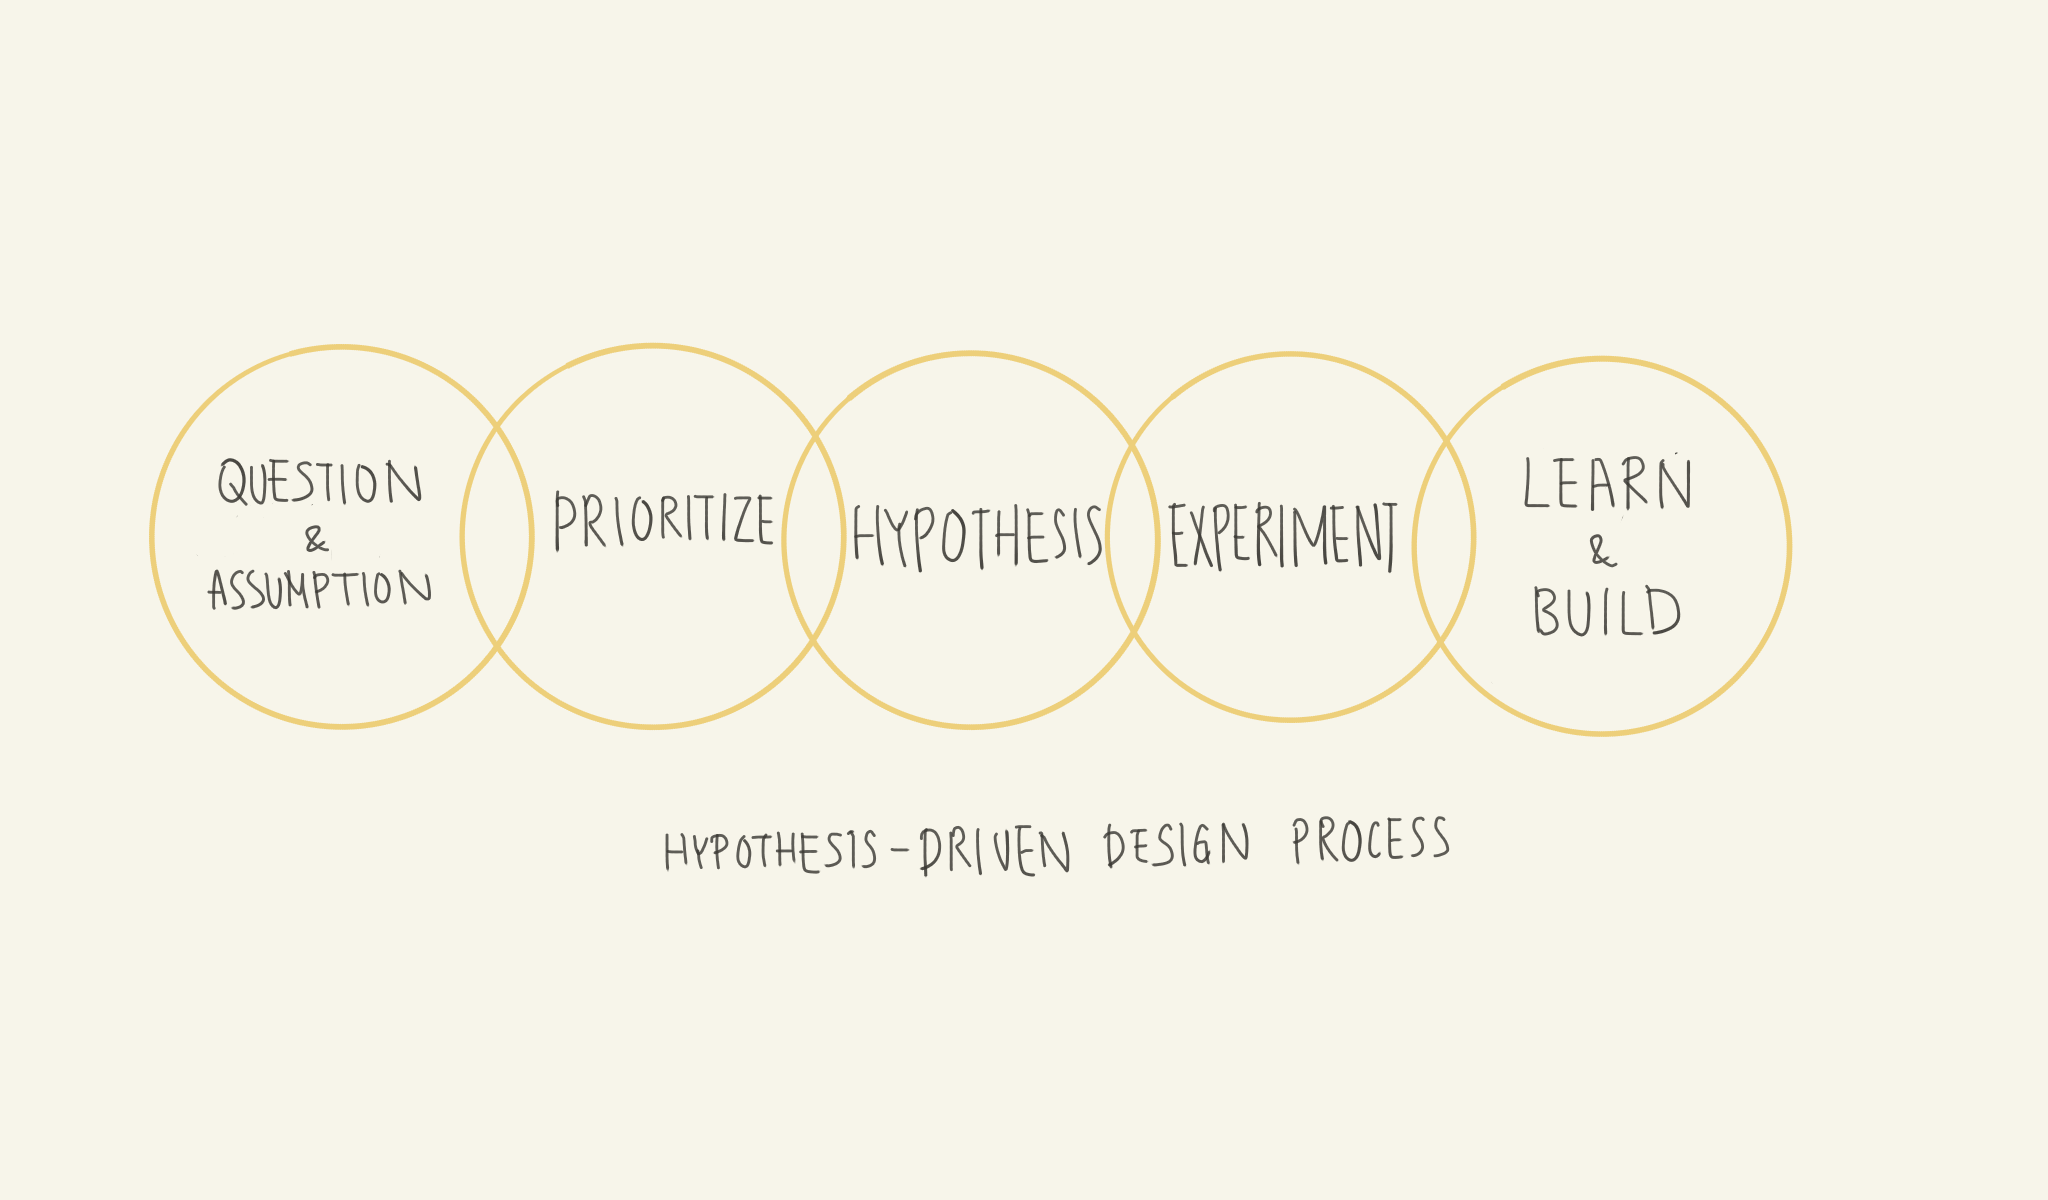 QUESTION
&
ASSUMPTION
PRIORITIZE
HYPOTHESIS
EXPERIMENT
LEARN
&
BUILD
HYPOTHESIS-DRIVEN DESIGN PROCESS